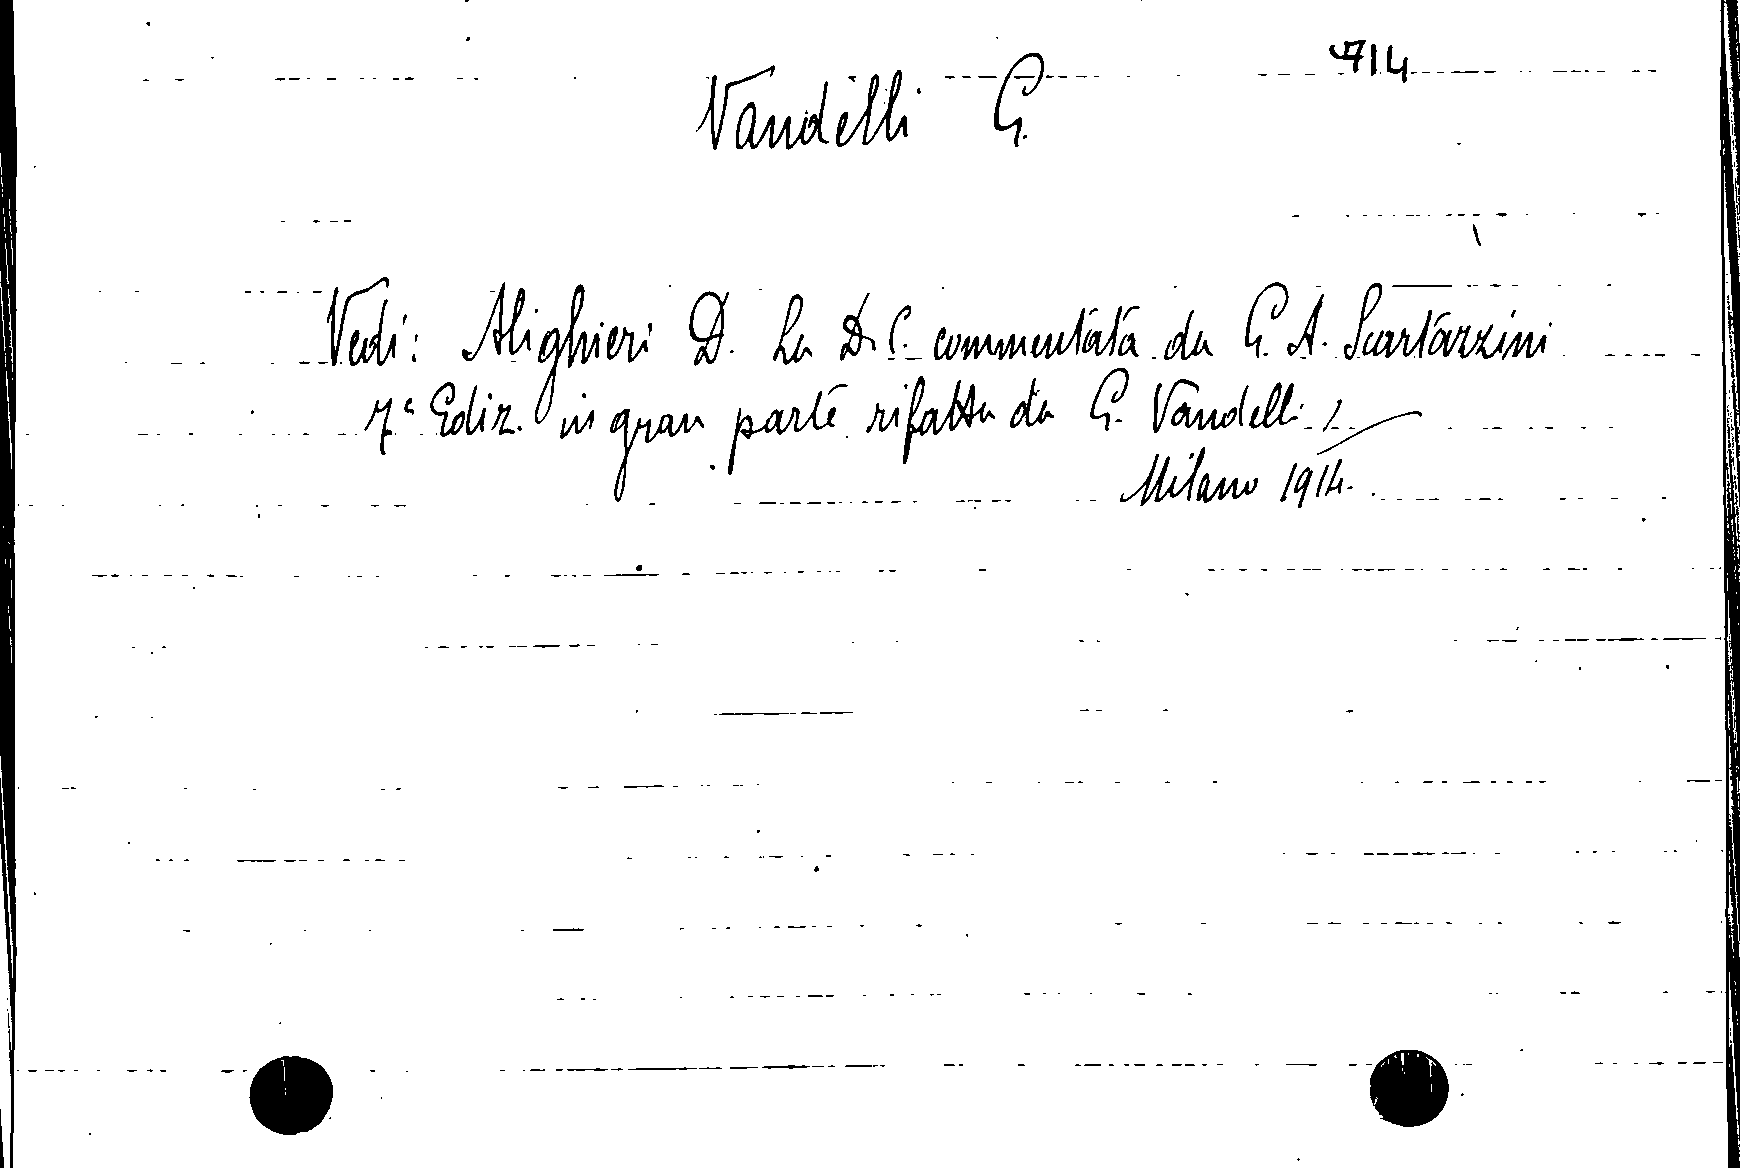 714
Vandelli G.
Vedi: Alighieri D. La D. C. commentata da G. A. Scartazzini
7ª Ediz. in gran parte rifatta da G. Vandelli
Milano 1914.